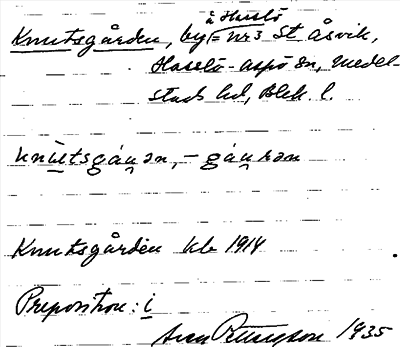 å Hasslö
Knutsgården, by = nr 3 St Åsvik,
Hasslö-aspö sn, Medel-
stads hd, Blek. l.
Knutsgården kb 1914
Preposition: i
Sven Bengtson 1935